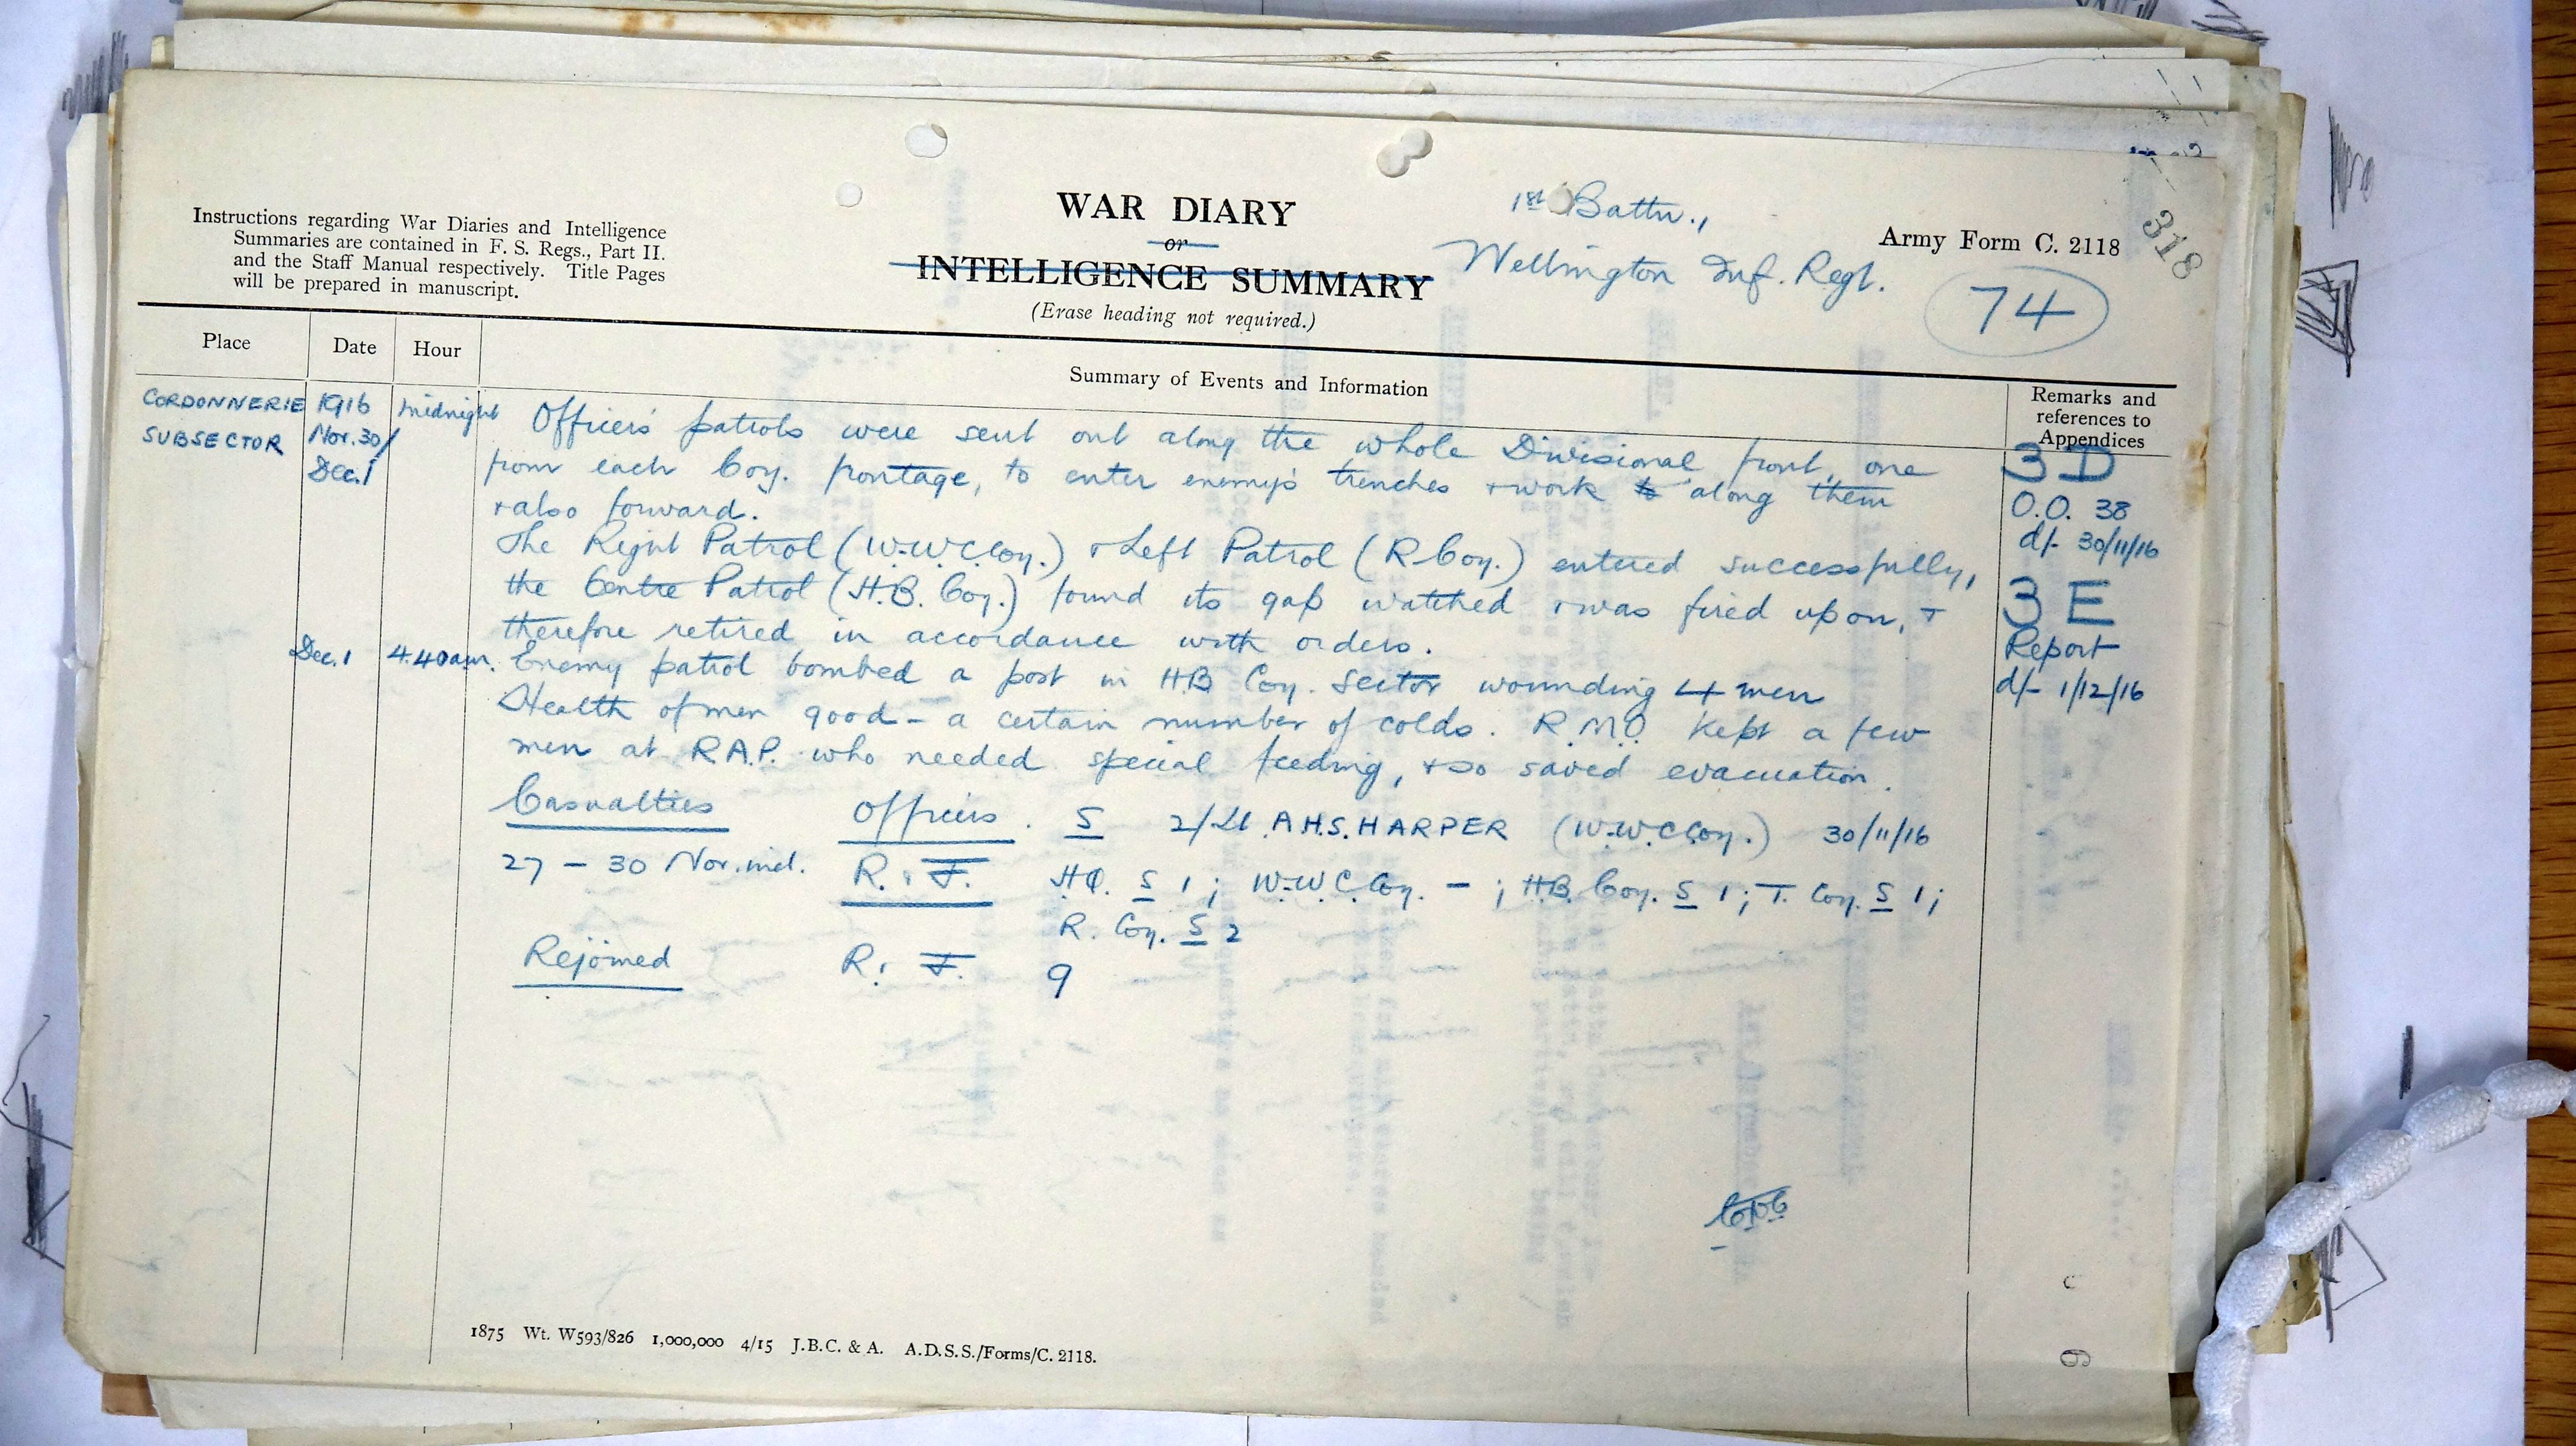 Instructions regarding War Diaries and Intelligence
Summaries are contained in F. S. Regs., Part II.
and the Staff Manual respectively. Title Pages
will be prepared in manuscript.
WAR DIARY
or
INTELLIGENCE SUMMARY
(Erase heading not required.)
1st Battn.,
Wellington Inf. Regt.
Army Form C. 2118
318
74
Place
Date
Hour
Summary of Events and Information
Remarks and
references to
Appendices
CORDONNERIE
SUBSECTOR
1916
Nov. 30/
Dec. 1
midnight
Officers' patrols were sent out along the whole Divisional front, one
from each Coy. frontage, to enter enemy's trenches + work to along them
+ also forward.
The Right Patrol (W.W.C Coy.) + Left Patrol (R Coy.) entered successfully,
the Centre Patrol (H.B. Coy.) found its gap watched + was fired upon, +
therefore retired in accordance with orders.
Dec. 1 4.40 a.m. Enemy patrol bombed a post in H.B Coy. sector wounding 4 men
Health of men good - a certain number of colds. R.M.O. kept a few
men at R.A.P. who needed special feeding, + so saved evacuation.
3D
O.O. 38
d/- 30/11/16
3E
Report
d/- 1/12/16
Casualties Officers. S 2/Lt A.H.S. HARPER (W.W.C Coy.) 30/11/16
27 - 30 Nov. incl. R. & F. HQ. S 1; W.W.C. Coy. - ; H.B. Coy. S 1; T. Coy. S 1;
R. Coy. S 2
Rejoined R. & F. 9
1875 Wt. W593/826 1,000,000 4/15 J.B.C. & A. A.D.S.S./Forms/C. 2118.